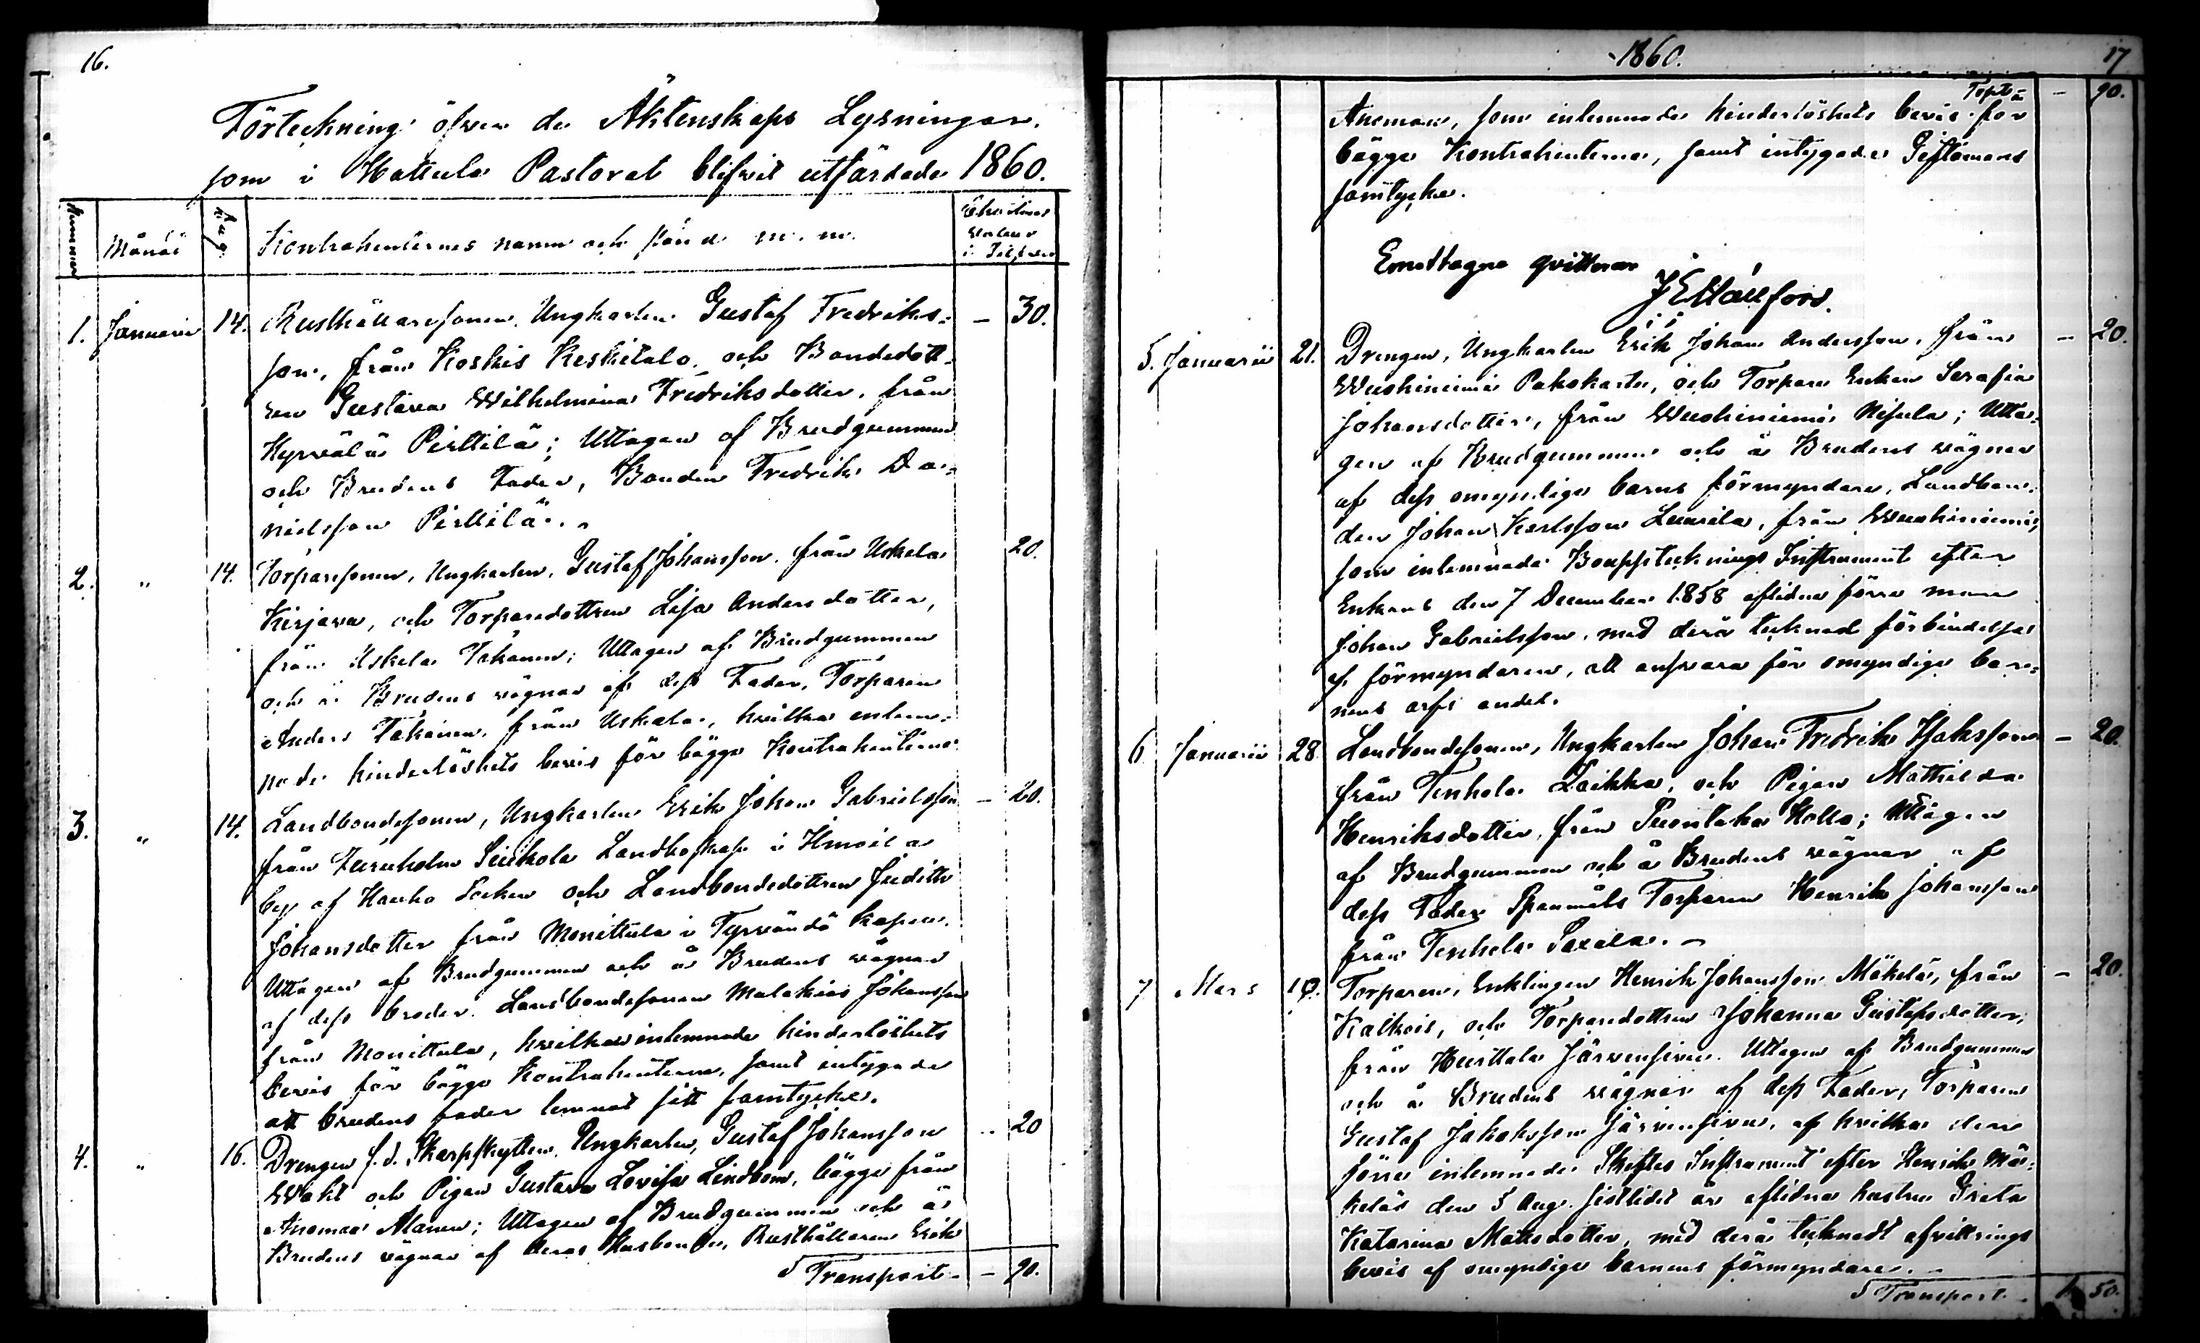 16.
Förteckning öfver de Äktenskaps Lysningar,
som i Hattula Pastorat blifvit utfärdade 1860.
Nummer Månad Dag Kontrahenternes namn och stånd m. m. Charitas i Silfver
1. Januarii 14. Rusthållaresonen, Ungkarlen Gustaf Fredriks- — 30.
son, från Koskis Keskitalo, och Bondedott-
ren Gustava Wilhelmina Fredriksdotter, från
Hyrvälä Pirttilä; Uttagen af Brudgummen
och Brudens Fader, Bonden Fredrik Da-
nielsson Pirttilä. —
2. " 14. Torparesonen, Ungkarlen, Gustaf Johansson från Uskela 20.
Kirjava, och Torparedottren Lisa Andersdotter,
från Uskela Takanen; Uttagen af Brudgummen
och å Brudens vägnar af dess Fader, Torparen
Anders Takanen, från Uskela, hvilka inlem-
nade hinderlöshets bevis för bägge Kontrahenterne
3. " 14. Landbondesonen, Ungkarlen Erik Johan Gabrielsson — 20.
från Landboskap i
by af Hauho Socken och Landbondedottren Judith
Johansdotter från Monittula i Tyrvändö Kapell.
Uttagen af Brudgummen och å Brudens vägnar
af dess broder Landbondesonen Malakias Johansson
från Monittula, hvilka inlemnade hinderlöshets
bevis för bägge Kontrahenterne, samt intygade
att brudens fader lemnat sitt samtycke.
4. " 16. Drengen f. d. Skarpskytten, Ungkarlen, Gustaf Johansson — 20
Wakt och Pigan Gustava Lovisa Lindbom, bägge från
Anomaa Alanen; Uttagen af Brudgummen och å
Brudens vägnar af deras Husbonde, Rusthållaren Erik
Transport — 90.
1860. 17
Tspt — 90.
Anoman, som inlemnade hinderlöshets bevis för
bägge Kontrahenterne, samt intygade Giftomans
samtycke.
Emottagne qvitteras
5. Januarii 21. Drengen, Ungkarlen Erik Johan Andersson, från — 20.
Wuohiniemi Pakokarta, och Torpare Enkan Serafia
Johansdotter, från Wuohiniemi Nisula; Utta-
gen af Brudgummen och å Brudens vägnar
af dess omyndige barns förmyndare, Landbon-
den Johan Karlsson Laurila, från Wuohiniemi,
som inlemnade Bouppteknings Instrument efter
Enkans den 7 December 1858 aflidne förre man
Johan Gabrielsson, med derå tecknad förbindelse
af förmyndaren, att ansvara för omyndige bar-
nens arfs andel.
6 Januarii 28 Landbondesonen, Ungkarlen Johan Fredrik Isaksson — 20.
från Tenhola Laikka, och Pigan Mathilda
Henriksdotter, från Hollo; Uttagen
af Brudgummen och å Brudens vägnar af
dess Fader Spanmåls Torparen Henrik Johansson
från Tenhola Saxala. —
7 Mars Torparen, Enklingen Henrik Johansson Mäkelä, från — 20.
Kalkois, och Torparedottren Johanna Gustafsdotter,
från Hurttala Järvensivu. Uttagen af Brudgummen
och å Brudens vägnar af dess Fader, Torparen
Gustaf Jakobsson Järvensivu, af hvilka den
förre inlemnade Skiftes Instrument efter Henrik Mä-
keläs den 5 Aug. sistlidet år aflidna hustru Greta
Katarina Matsdotter, med derå tecknadt afvittrings
bevis af omyndige barnens förmyndare. —
Transport. 1 50.